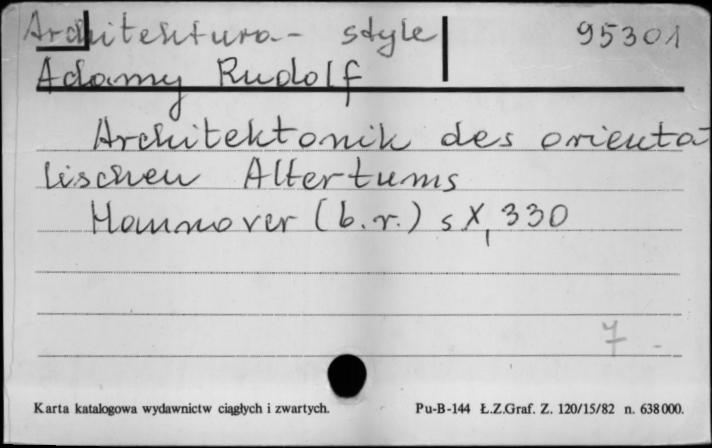 Architektura - style 95301
Adamy Rudolf
Architektonik des orienta
lischen Altertums
Hannover (b.r.) s X, 330
7
Karta katalogowa wydawnictw ciągłych i zwartych. Pu-B-144 Ł.Z.Graf. Z. 120/15/82 n. 638000.